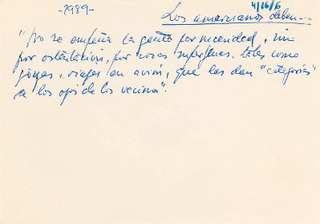 -2989-
4/26/6
Los americanos deben...
"No se empeña la gente por necesidad, sino
por ostentación, por cosas superfluas, tales como
joyas, viajes en avión, que les dan "categoría"
a los ojos de los vecinos".